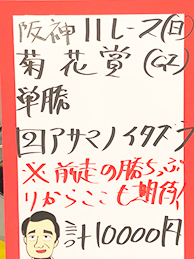 阪神11レース(日)
菊花賞(GI)
単勝
2アサマノイタズラ
※前走の勝ちっぷ
りからここも期待!
計10000円